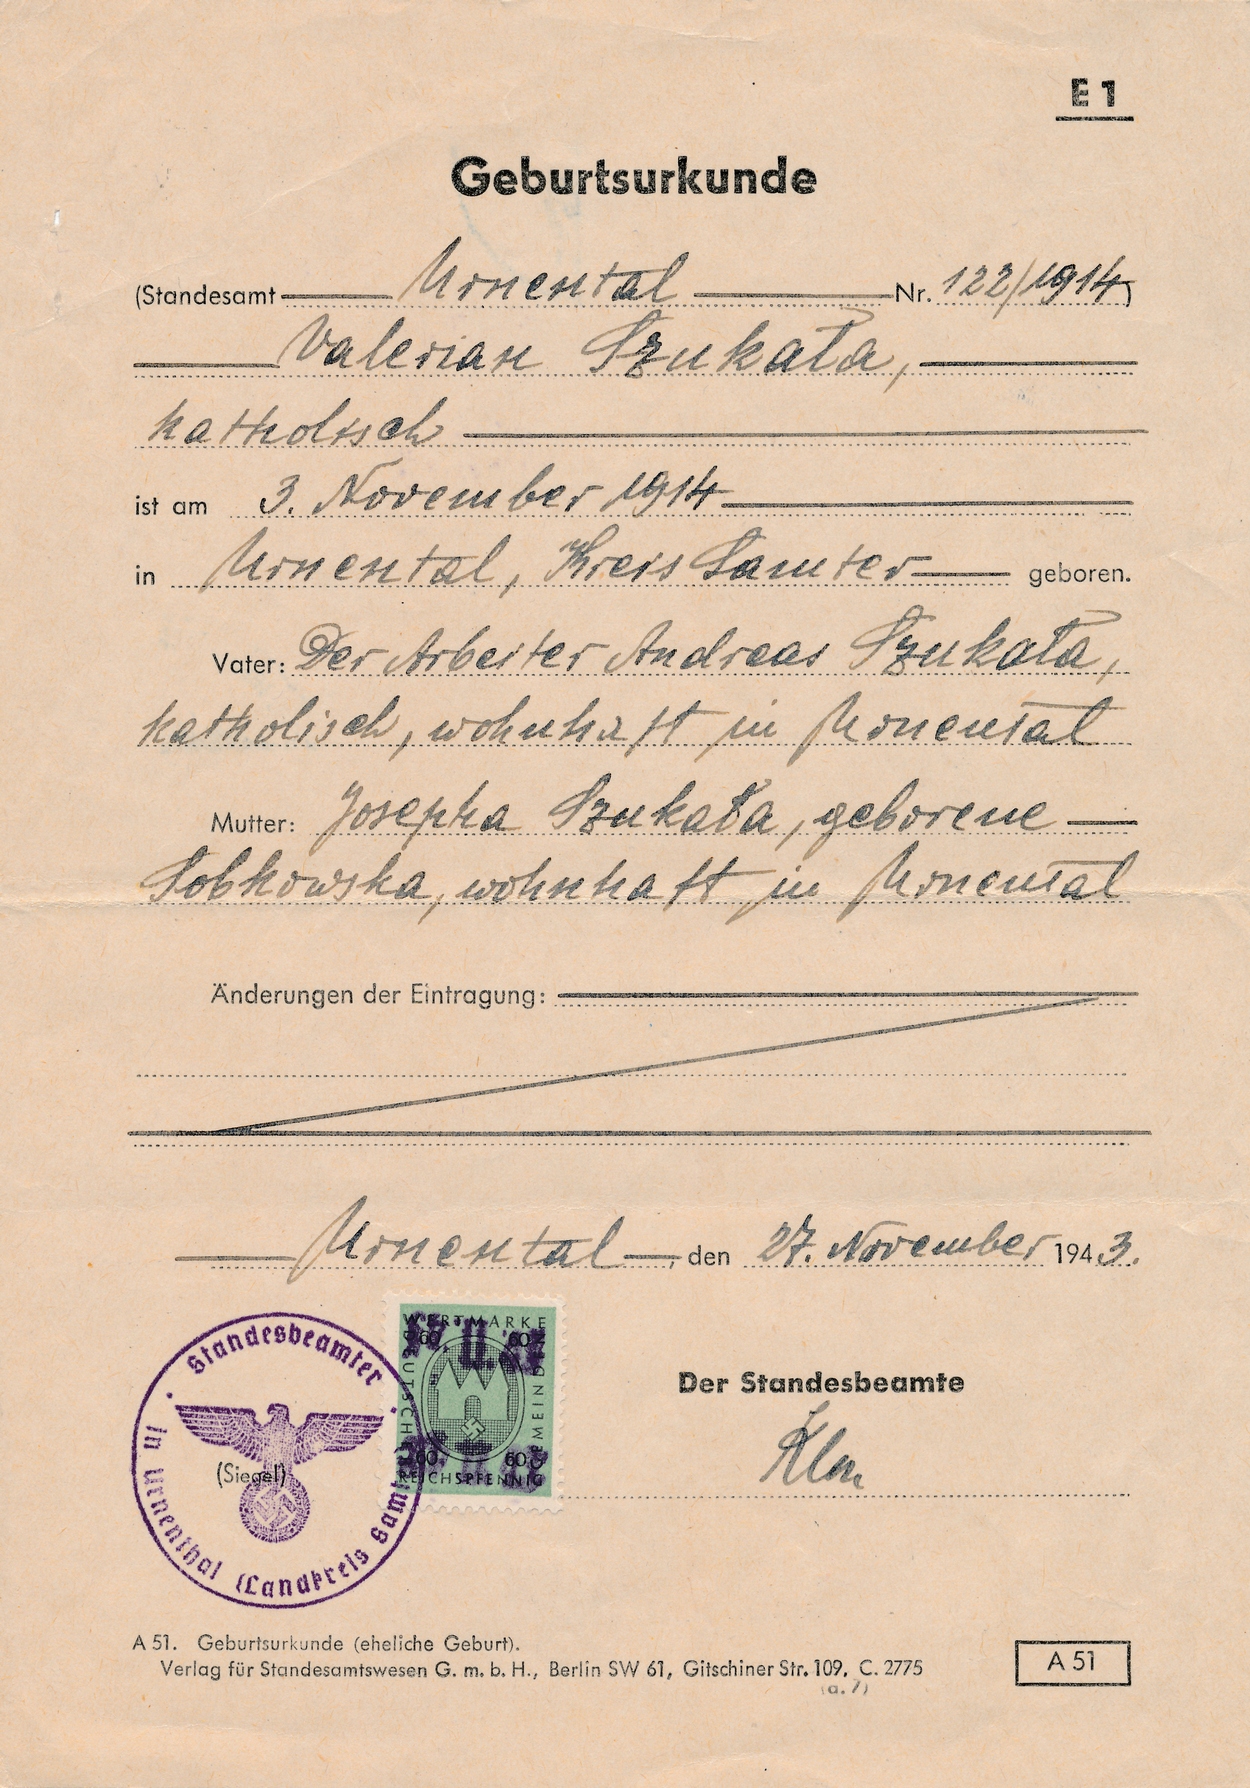 E 1
Geburtsurkunde
(Standesamt Urnental Nr. 122/1914)
Valerian Szukała,
katholisch
ist am 3. November 1914
in Urnental, Kreis Samter geboren.
Vater: Der Arbeiter Andreas Szukała,
katholisch, wohnhaft in Urnental
Mutter: Josepha Szukała, geborene
Sobkowska, wohnhaft in Urnental
Änderungen der Eintragung:
Urnental, den 27. November 1943.
Standesbeamter
in Urnenthal (Landkreis
(Siegel)
WERTMARKE
60 60
DEUTSCHE GEMEINDEN
60 60
REICHSPFENNIG
Der Standesbeamte
A 51. Geburtsurkunde (eheliche Geburt).
Verlag für Standesamtswesen G. m. b. H., Berlin SW 61, Gitschiner Str. 109. C. 2775
(a. 7)
A 51